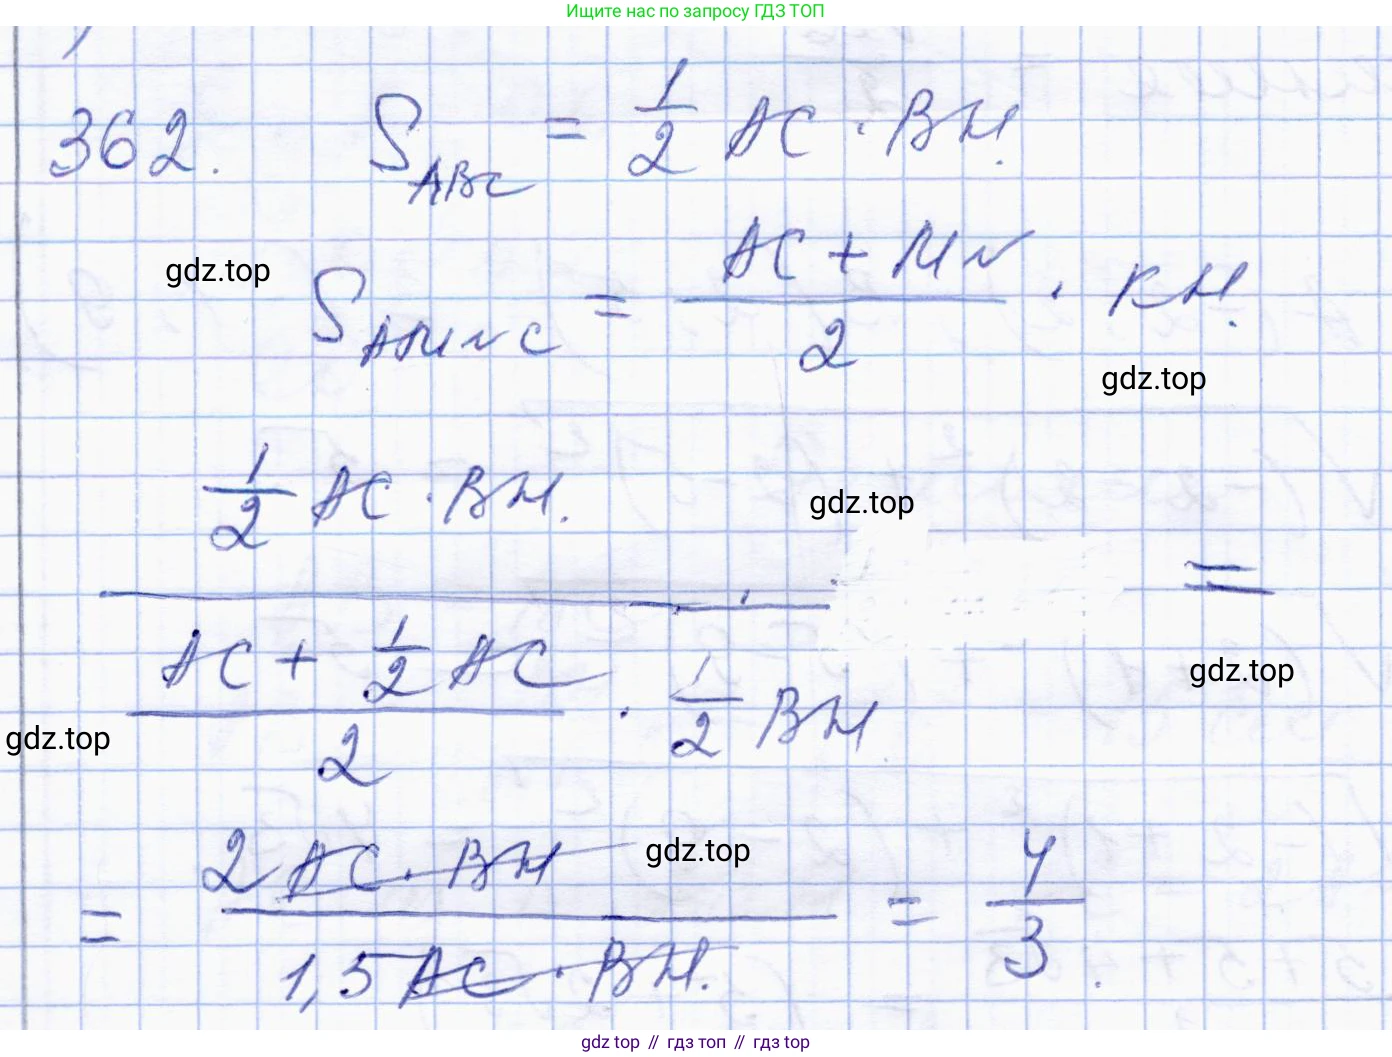 Ищите нас по запросу ГДЗ ТОП
362. S_ABC = 1/2 AC · BH.
gdz.top
S_AMNC = (AC + MN)/2 · KH.
gdz.top
1/2 AC · BH.
gdz.top
=
AC + 1/2 AC
gdz.top
2 · 1/2 BH
gdz.top
= 2 AC · BH / 1,5 AC · BH. = 4/3.
gdz.top
gdz top // гдз топ // gdz top